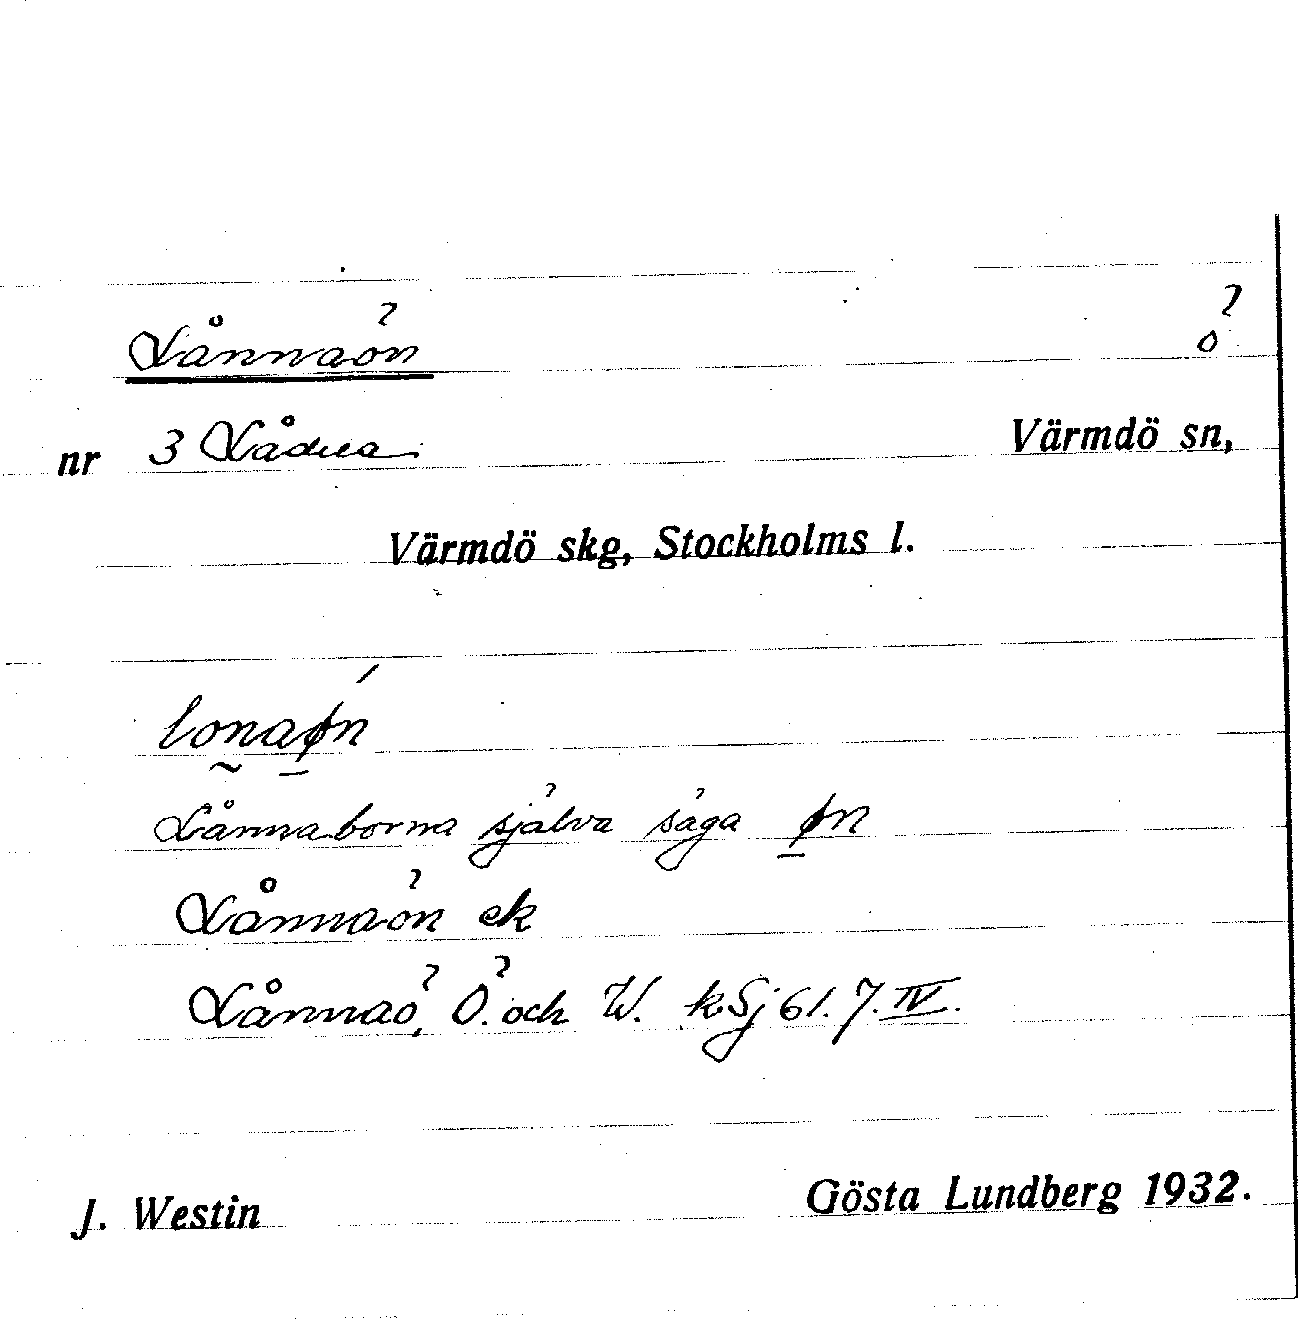 Lånnaön ö
nr 3 Lådna Värmdö sn,
Värmdö skg, Stockholms l.
lonaøn
Lånnaborna själva säga øn
Lånnaön ek
Lånnaö, Ö. och W. kSj 61. 7. IV.
J. Westin Gösta Lundberg 1932.